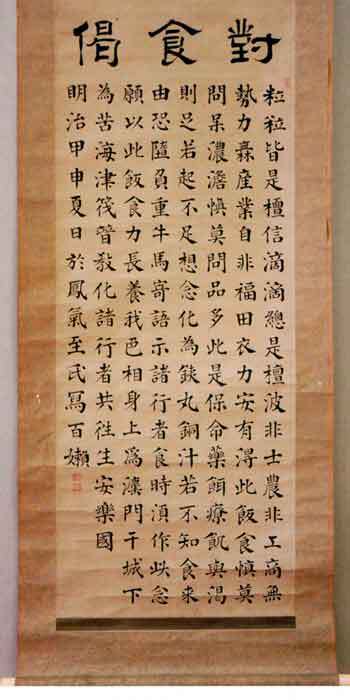 對食偈
粒粒皆是檀信滴滴總是檀波非士農非工商無
勢力橆産業自非福田衣力安有淂此飯食慎莫
問味濃澹慎莫問品多此是保命藥餌療飢與渴
則足若起不足想念化為鉄丸銅汁若不知食来
由恐隨負重牛馬寄語示諸行者食時須作此念
願以此飯食力長養我色相身上為灋門干城下
為苦海津筏普教化諸行者共往生安樂國
明治甲申夏日於鳳氣至氏寫百嬾